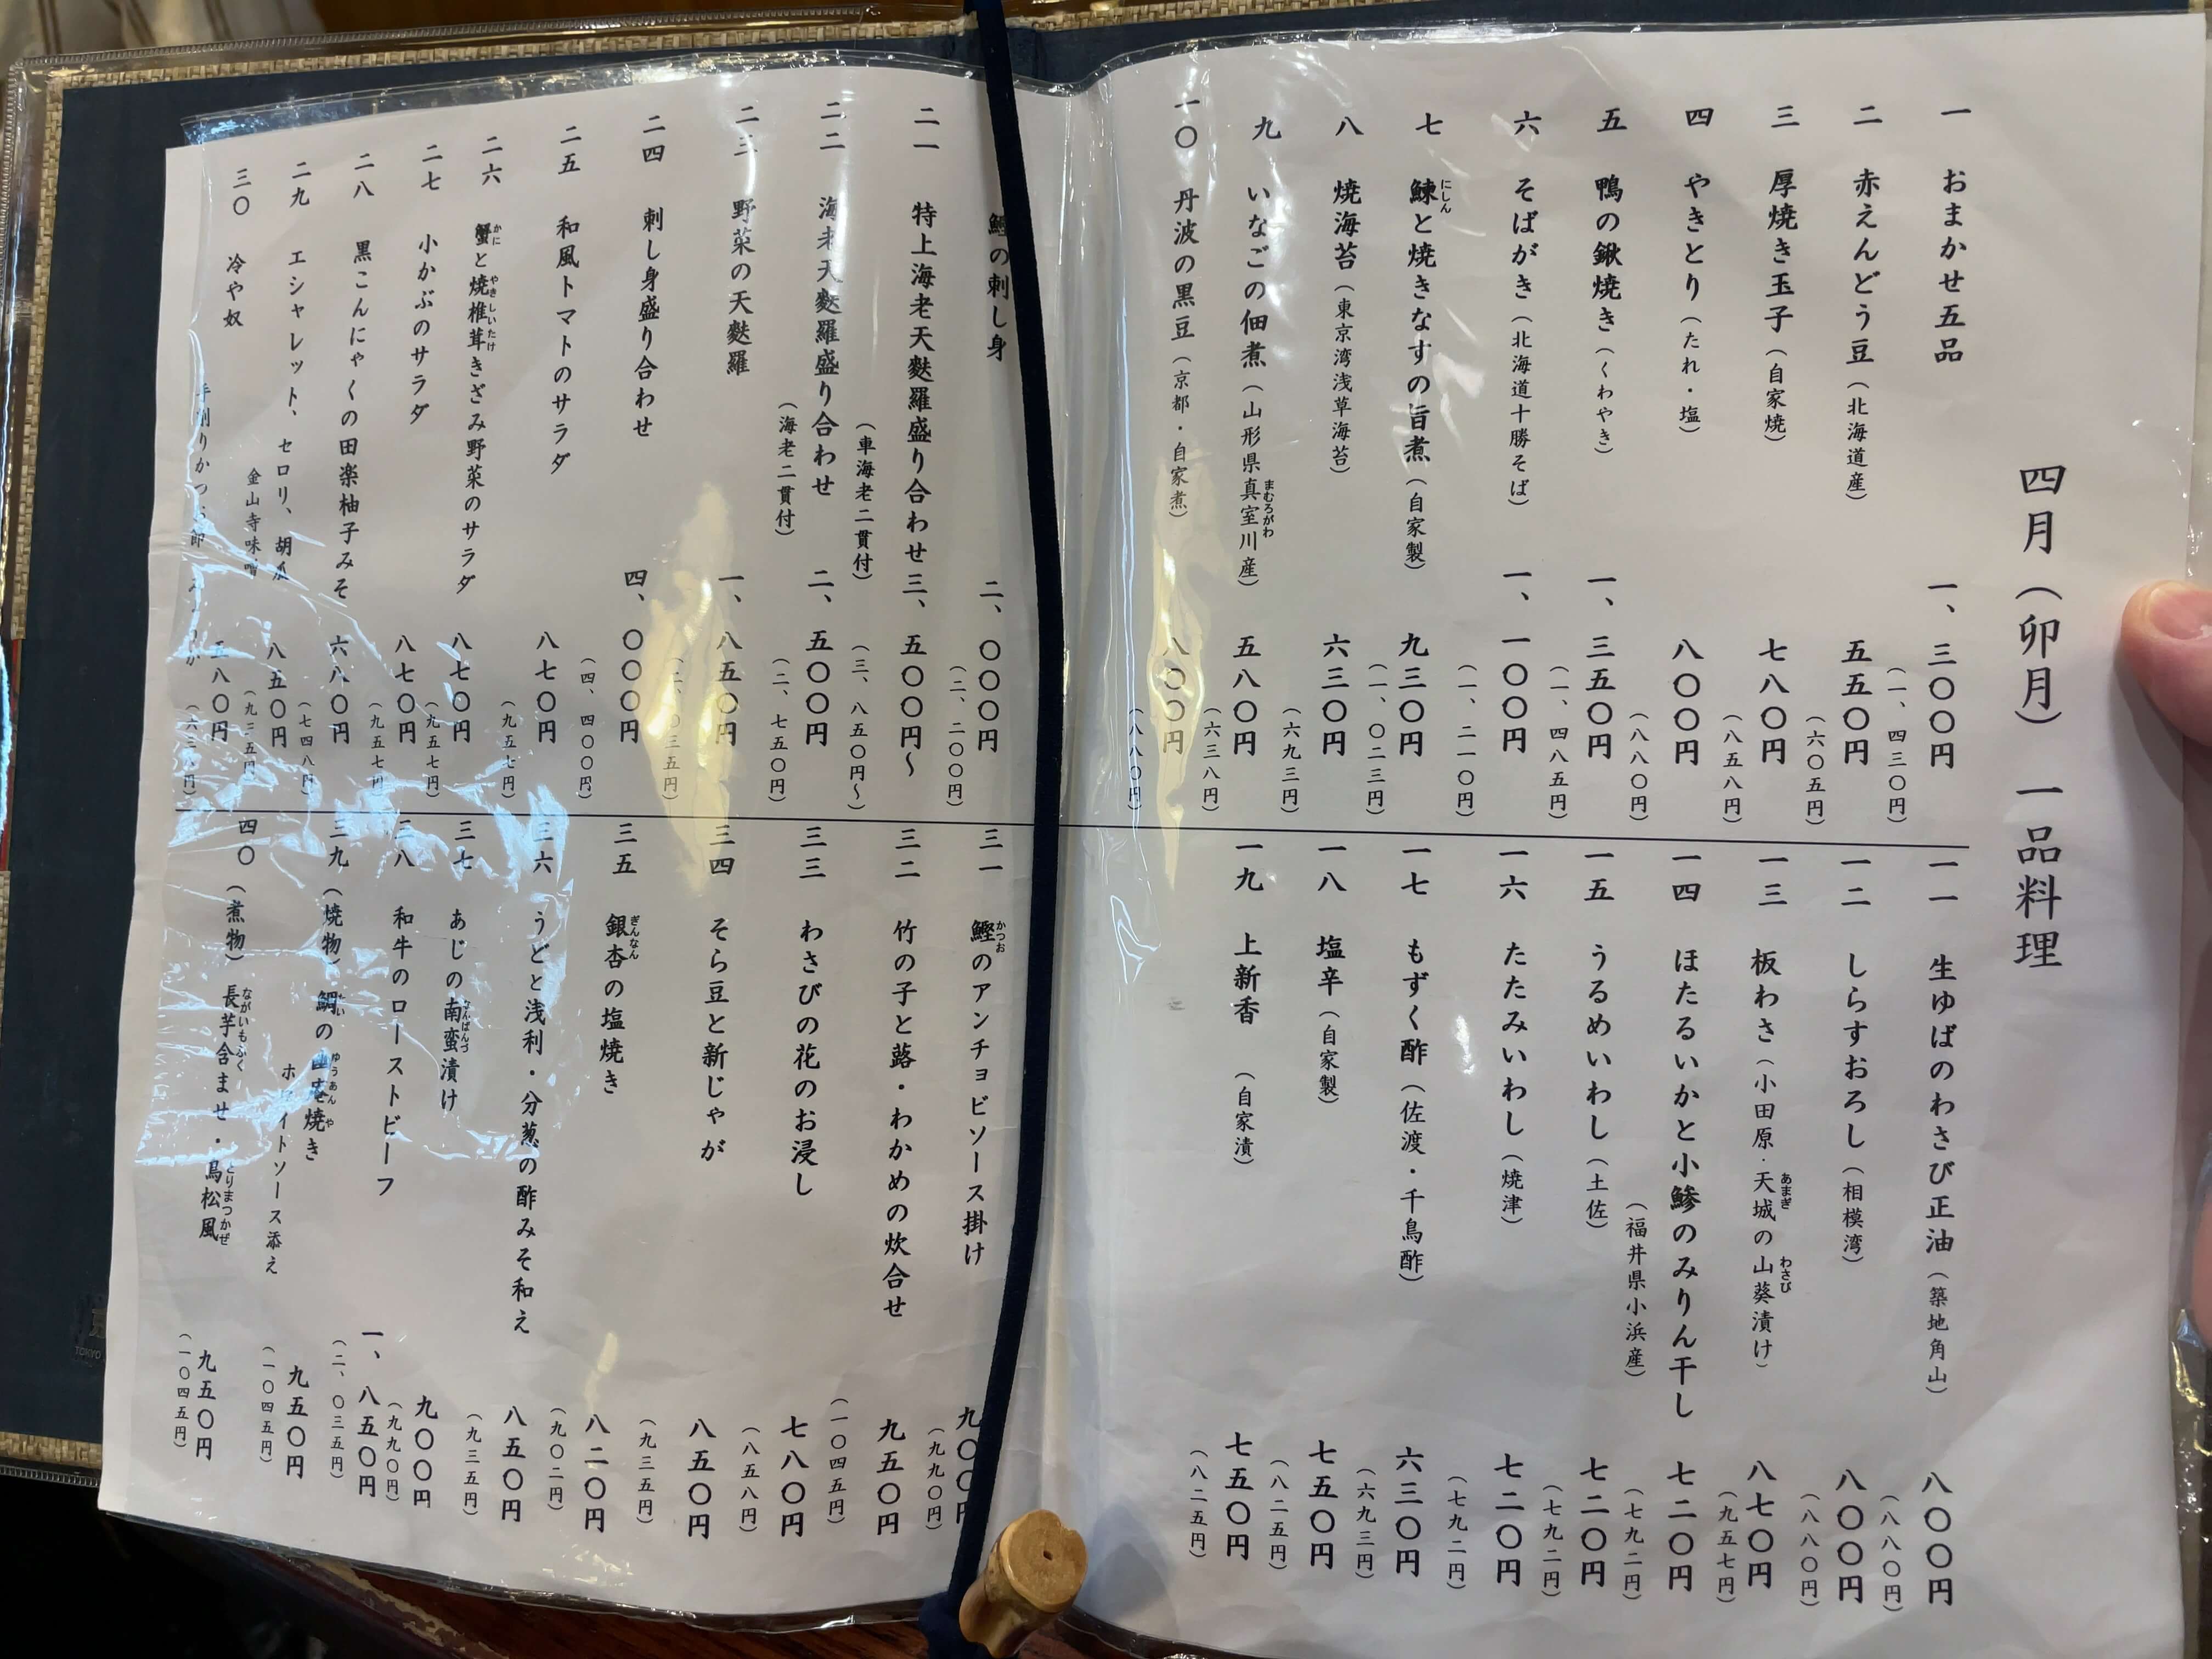 四月（卯月）　一品料理
一　おまかせ五品　一、三〇〇円
（一、四三〇円）
二　赤えんどう豆（北海道産）　五五〇円
（六〇五円）
三　厚焼き玉子（自家焼）　七八〇円
（八五八円）
四　やきとり（たれ・塩）　八〇〇円
（八八〇円）
五　鴨の鍬焼き（くわやき）　一、三五〇円
（一、四八五円）
六　そばがき（北海道十勝そば）　一、一〇〇円
（一、二一〇円）
にしん
七　鰊と焼きなすの旨煮（自家製）　九三〇円
（一、〇二三円）
八　焼海苔（東京湾浅草海苔）　六三〇円
（六九三円）
まむろがわ
九　いなごの佃煮（山形県真室川産）　五八〇円
（六三八円）
一〇　丹波の黒豆（京都・自家煮）　八〇〇円
（八八〇円）
一一　生ゆばのわさび正油（築地角山）　八〇〇円
（八八〇円）
一二　しらすおろし（相模湾）　八〇〇円
（八八〇円）
あまぎ　わさび
一三　板わさ（小田原・天城の山葵漬け）　八七〇円
（九五七円）
一四　ほたるいかと小鯵のみりん干し　七二〇円
（福井県小浜産）　（七九二円）
一五　うるめいわし（土佐）　七二〇円
（七九二円）
一六　たたみいわし（焼津）　七二〇円
（七九二円）
一七　もずく酢（佐渡・千鳥酢）　六三〇円
（六九三円）
一八　塩辛（自家製）　七五〇円
（八二五円）
一九　上新香　（自家漬）　七五〇円
（八二五円）
鰹の刺し身　二、〇〇〇円
（二、二〇〇円）
二一　特上海老天麩羅盛り合わせ　三、五〇〇円〜
（車海老二貫付）　（三、八五〇円〜）
二二　海老天麩羅盛り合わせ　二、五〇〇円
（海老二貫付）　（二、七五〇円）
二三　野菜の天麩羅　一、八五〇円
（二、〇三五円）
二四　刺し身盛り合わせ　四、〇〇〇円
（四、四〇〇円）
二五　和風トマトのサラダ　八七〇円
（九五七円）
かに　やきしいたけ
二六　蟹と焼椎茸きざみ野菜のサラダ　八七〇円
（九五七円）
二七　小かぶのサラダ　八七〇円
（九五七円）
二八　黒こんにゃくの田楽柚子みそ　六八〇円
（七四八円）
二九　エシャレット、セロリ、胡瓜　八五〇円
金山寺味噌　（九三五円）
三〇　冷や奴　五八〇円
手削りかつお節　（六三八円）
かつお
三一　鰹のアンチョビソース掛け　九〇〇円
（九九〇円）
三二　竹の子と蕗・わかめの炊合せ　九五〇円
（一〇四五円）
三三　わさびの花のお浸し　七八〇円
（八五八円）
三四　そら豆と新じゃが　八五〇円
（九三五円）
ぎんなん
三五　銀杏の塩焼き　八二〇円
（九〇二円）
三六　うどと浅利・分葱の酢みそ和え　八五〇円
（九三五円）
なんばんづ
三七　あじの南蛮漬け　九〇〇円
（九九〇円）
三八　和牛のローストビーフ　一、八五〇円
（二、〇三五円）
たい　ゆうあんや
三九　（焼物）鯛の幽庵焼き　九五〇円
ホワイトソース添え　（一〇四五円）
ながいもふく　とりまつかぜ
四〇　（煮物）長芋含ませ・鳥松風　九五〇円
（一〇四五円）
TOKYO